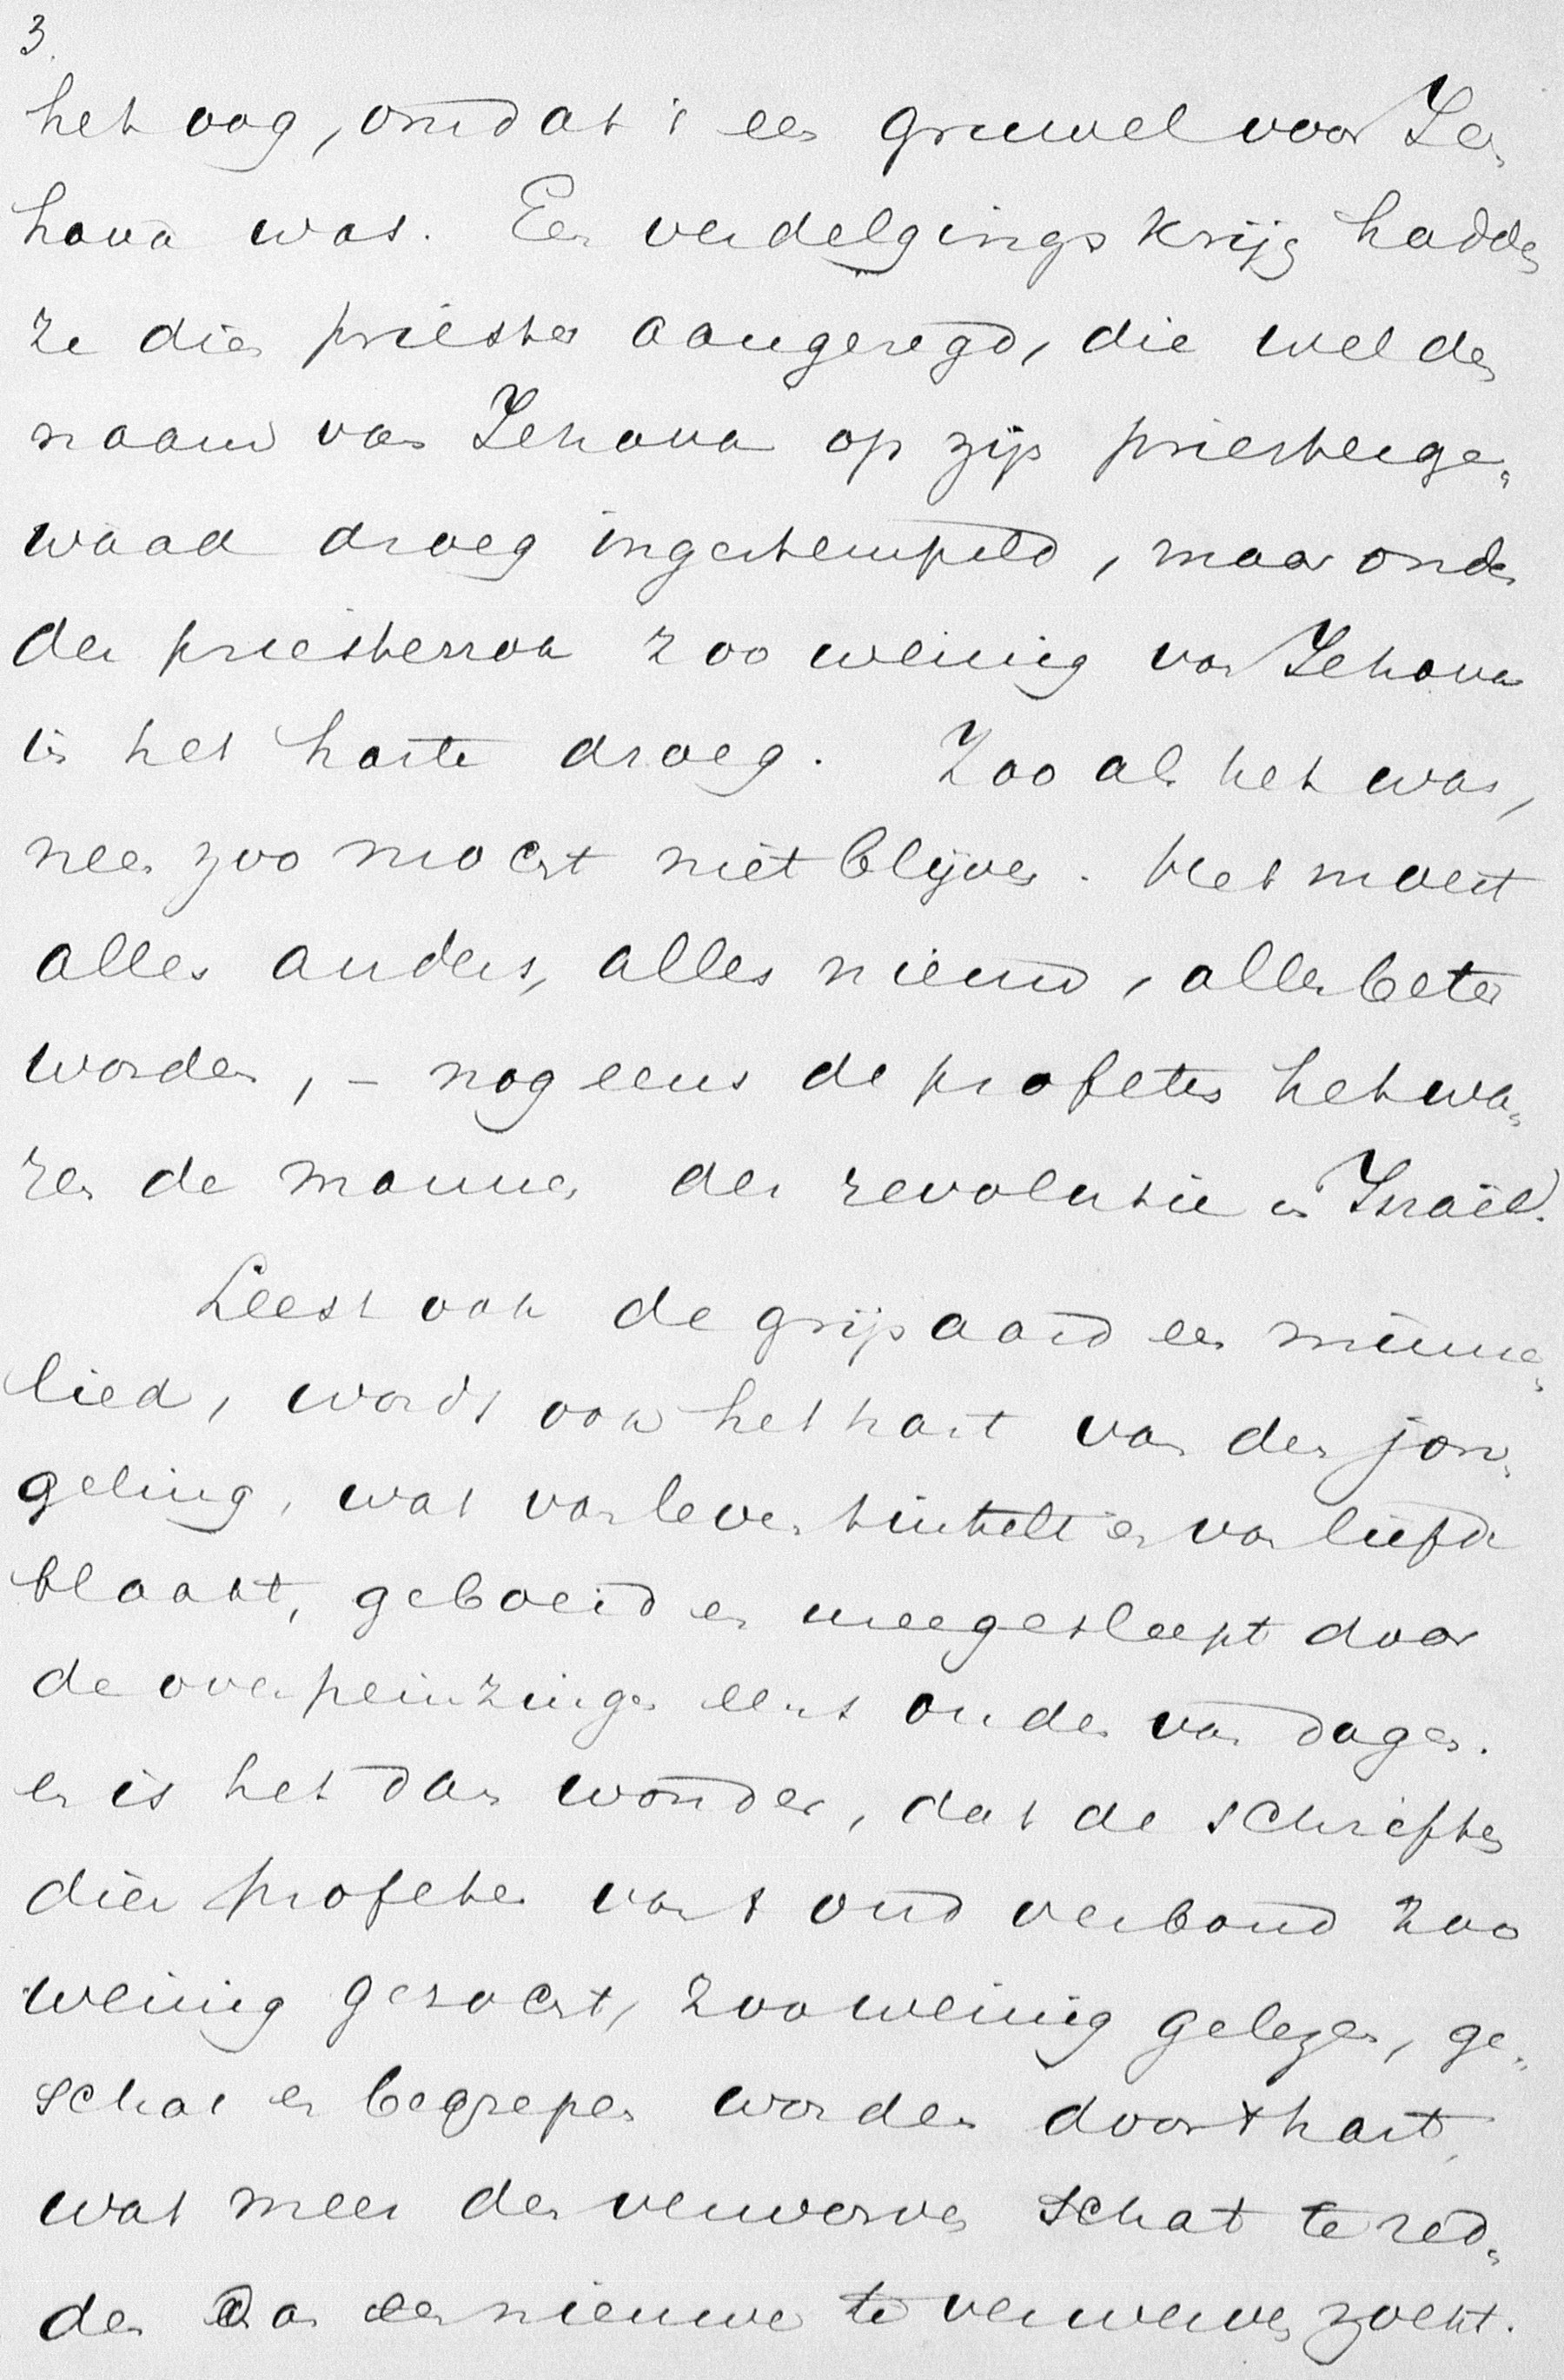 3.
het oog, omdat 't een gruwel voor Je-
hova was. Een verdelgingskrijg hadden
ze dien priester aangezegd, die wel den
naam van Jehova op zijn priesterge-
waad droeg ingestempeld, maar onder
den priesterrok zoo weinig van Jehova
in het harte droeg. Zoo als het was,
neen zoo mocht niet blijven. Het moest
alles anders, alles nieuw, alles beter
worden, – nog eens de profeten het wa-
ren de mannen der revolutie in Israël.
Leest ook de grijsaard een minne-
lied, wordt ook het hart van den jon-
geling, wat van leven tintelt en van liefde
blaakt, geboeid en meegesleept door
de overpeinzingen eens ouden van dagen.
en is het dan wonder, dat de schriften
dier profeten van 't oud verbond zoo
weinig gezocht, zoo weinig gelezen, ge-
schat en begrepen worden door 't hart,
wat meer den verworven schat te red-
den dan een nieuwe te verwerven zoekt.